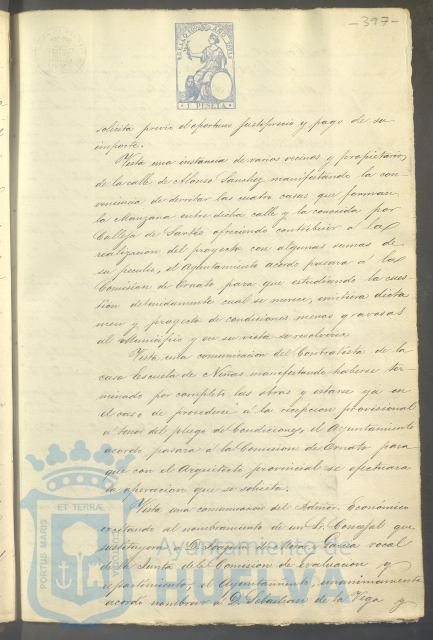 -397-
1 PESETA
solicita previo el oportuno justiprecio y pago de su
importe.
Vista una instancia de varios vecinos y propietarios
de la calle de Alonso Sanchez manifestando la con-
veniencia de derribar las cuatro casas que forman
la Manzana entre dicha calle y la conocida por
Calleja de Santos ofreciendo contribuir á la
realizacion del proyecto con algunas sumas de
su peculio, el Ayuntamiento acordó pasara á la
Comision de Ornato para que estudiando la cues-
tion detenidamente cual se merece, emitiera dicta
men y proyecto de condiciones menos gravosas
al Municipio y en su vista se resolveria
Vista una comunicacion del Contratista de la
casa Escuela de Niñas manifestando haberse ter-
minado por completo las obras y estarse ya en
el caso de procederse á la recepcion provisional
á tenor del pliego de Condiciones, el Ayuntamiento
acordó pasara á la Comision de Ornato para
que con el Arquitecto provincial se efectuara
la operacion que se solicita.
Vista una comunicacion del Admor. Económico
excitando al nombramiento de un Sr. Concejal que
sustituyera á D. Joaquin de la Garcia vocal
de la Junta de la Comision de evaluacion y
repartimiento, el Ayuntamiento, unanimamente
acordó nombrar á D. Sebastian de la Vega y
PORTUS MARIS ET TERRAE CUSTODIA
Ayuntamiento de
HUELVA